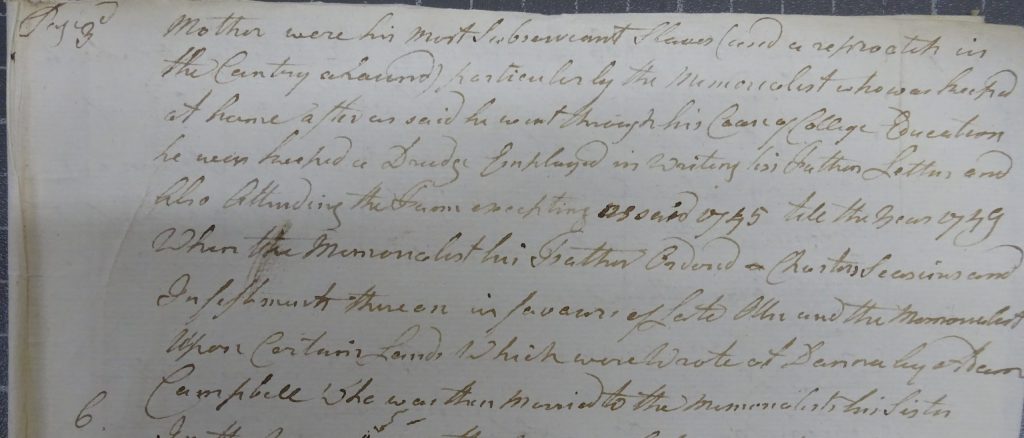 Mother were his most Subservient Slaves (and a reproach in
the Cantry ahaund) particularly the Memorialist who was keeped
3
at hame after as said he went through his Coase of College Education
he was keeped a Drudge Employed in Writing his Father Letters and
Also Attending the Farm excepting as said 1745 till the Year 1749
When the Memorialist his Frather Ordord a Charters Seasins and
Infeftments thereon in favours of Late and the Memorialist
Upon Certain Lands Which were Wrote at Danna by Adam
Campbell Who was then Married to the Memorialists his Sister
6
In the